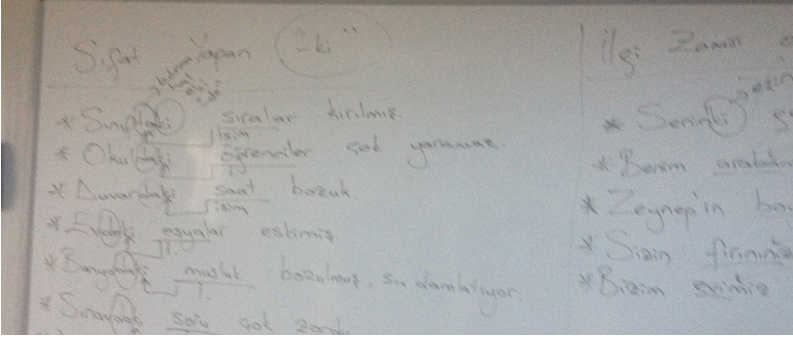 Sıfat Yapan "-ki"
* Sınıftaki sıralar kırılmış
isim
* Okuldaki öğrenciler çok yaramaz.
i.
* Duvardaki saat bozuk
isim
* Evdeki eşyalar eskimiş
i.
* Banyodaki musluk bozulmuş, su damlatıyor.
i.
* Sınavdaki soru çok zordu
İlgi Zamiri
* Seninki
* Benim
* Zeynep'in
* Sizin
* Bizim evimiz